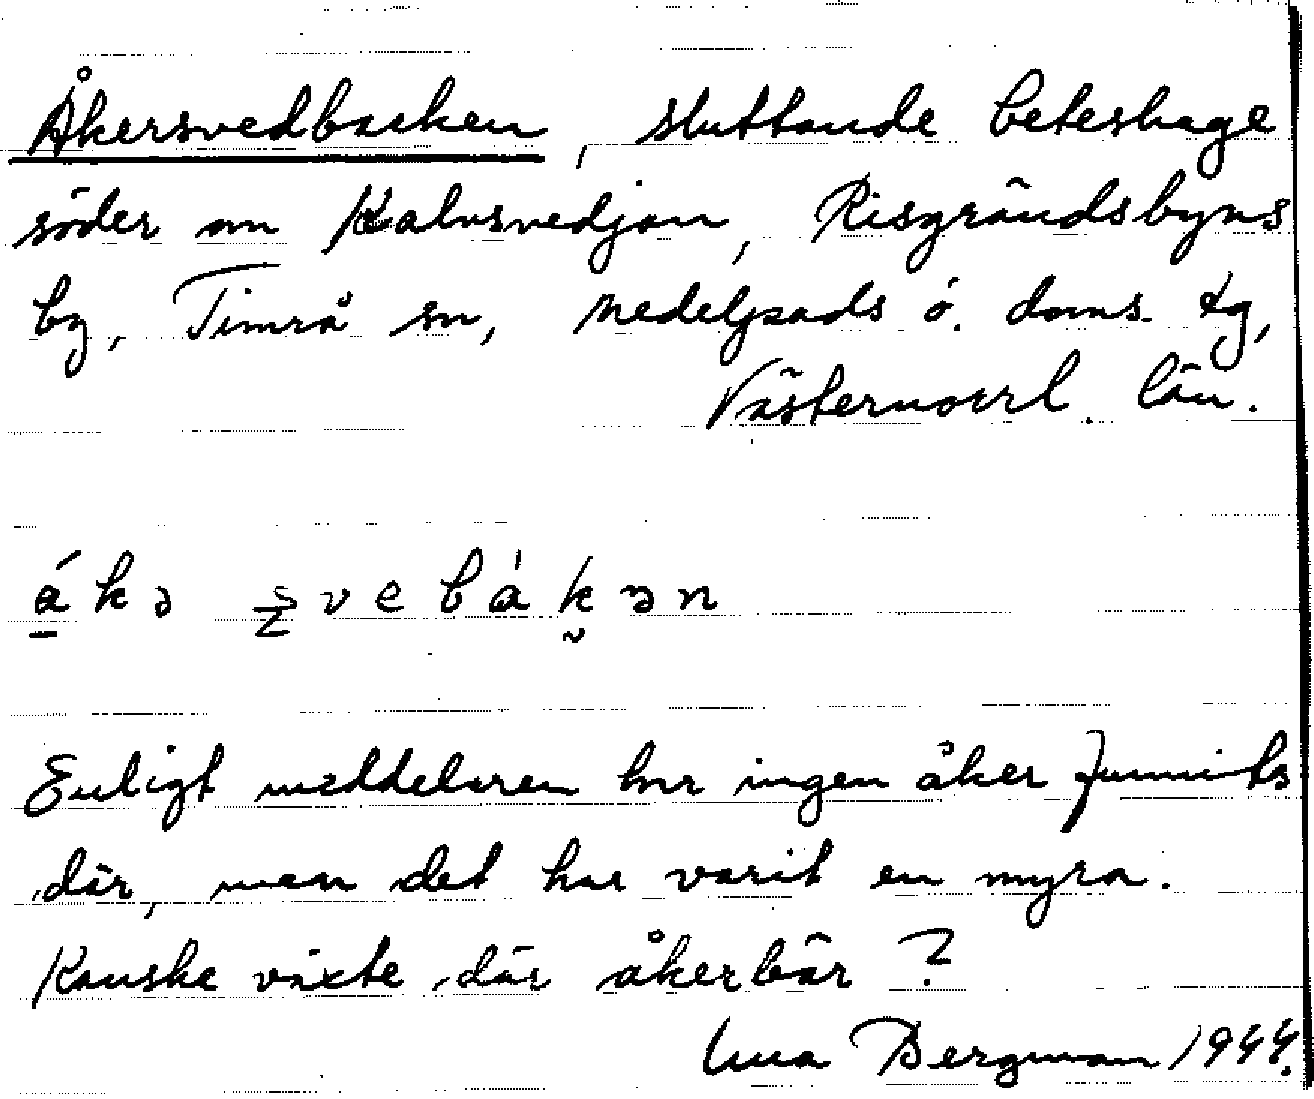 Åkersvedbacken, sluttande beteshage
söder om Kalvsvedjan, Risgrändsbyns
by, Timrå sn, Medelpads ö. doms. tg,
Västernorrl. län.
á k ə z v e b á k ə n
Enligt meddelaren har ingen åker funnits
där, men det har varit en myra.
Kanske växte där åkerbär?
Bergman 1944.